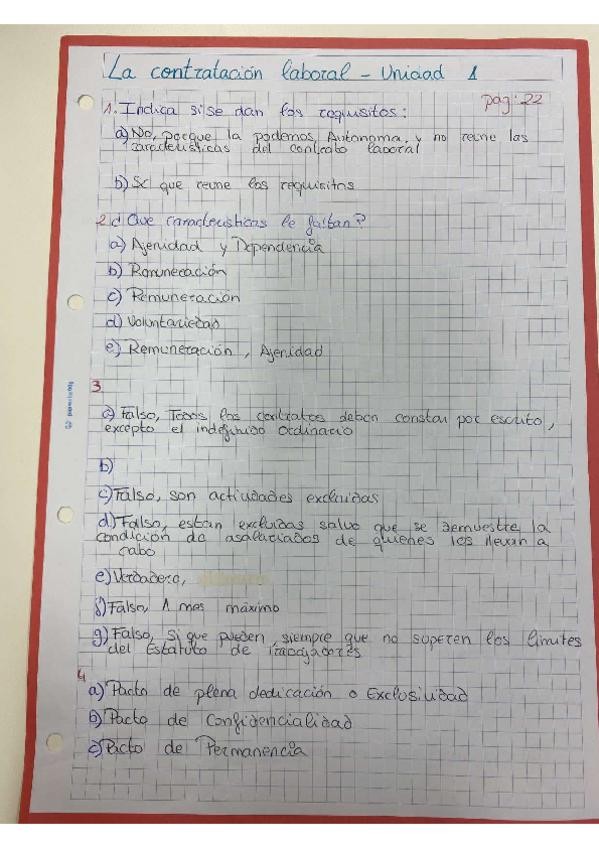 La contratación laboral - Unidad 1
pag: 22
1. Indica si se dan los requisitos:
a) No, porque la podemos Autonoma, y no reune las
caracteristicas del contrato laboral
b) Si que reune los requisitos
2. ¿Que caracteristicas le faltan?
a) Ajenidad y Dependencia
b) Remuneración
c) Remuneración
d) Voluntariedad
e) Remuneración, Ajenidad
3
a) Falso, Todos los contratos deben constar por escrito,
excepto el indefinido ordinario
b)
c) Falso, son actividades excluidas
d) Falso, estan excluidas salvo que se demuestre la
condición de asalariados de quienes los llevan a
cabo
e) Verdadero,
f) Falso, 1 mes máximo
g) Falso, Si que pueden, siempre que no superen los limites
del Estatuto de Trabajadores
4
a) Pacto de plena dedicación o Exclusividad
b) Pacto de Confidencialidad
c) Pacto de Permanencia